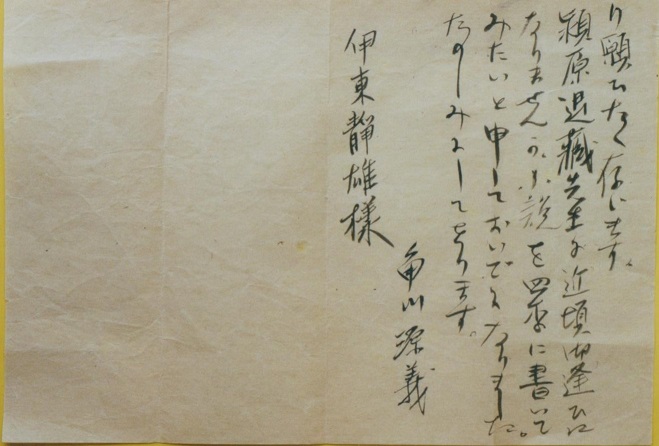 り願ひたく存じます。
潁原退藏先生に近頃御逢ひに
なりませんか小説を四季に書いて
みたいと申しておいでになりました。
たのしみにしてをります。
伊東靜雄様
角川源義